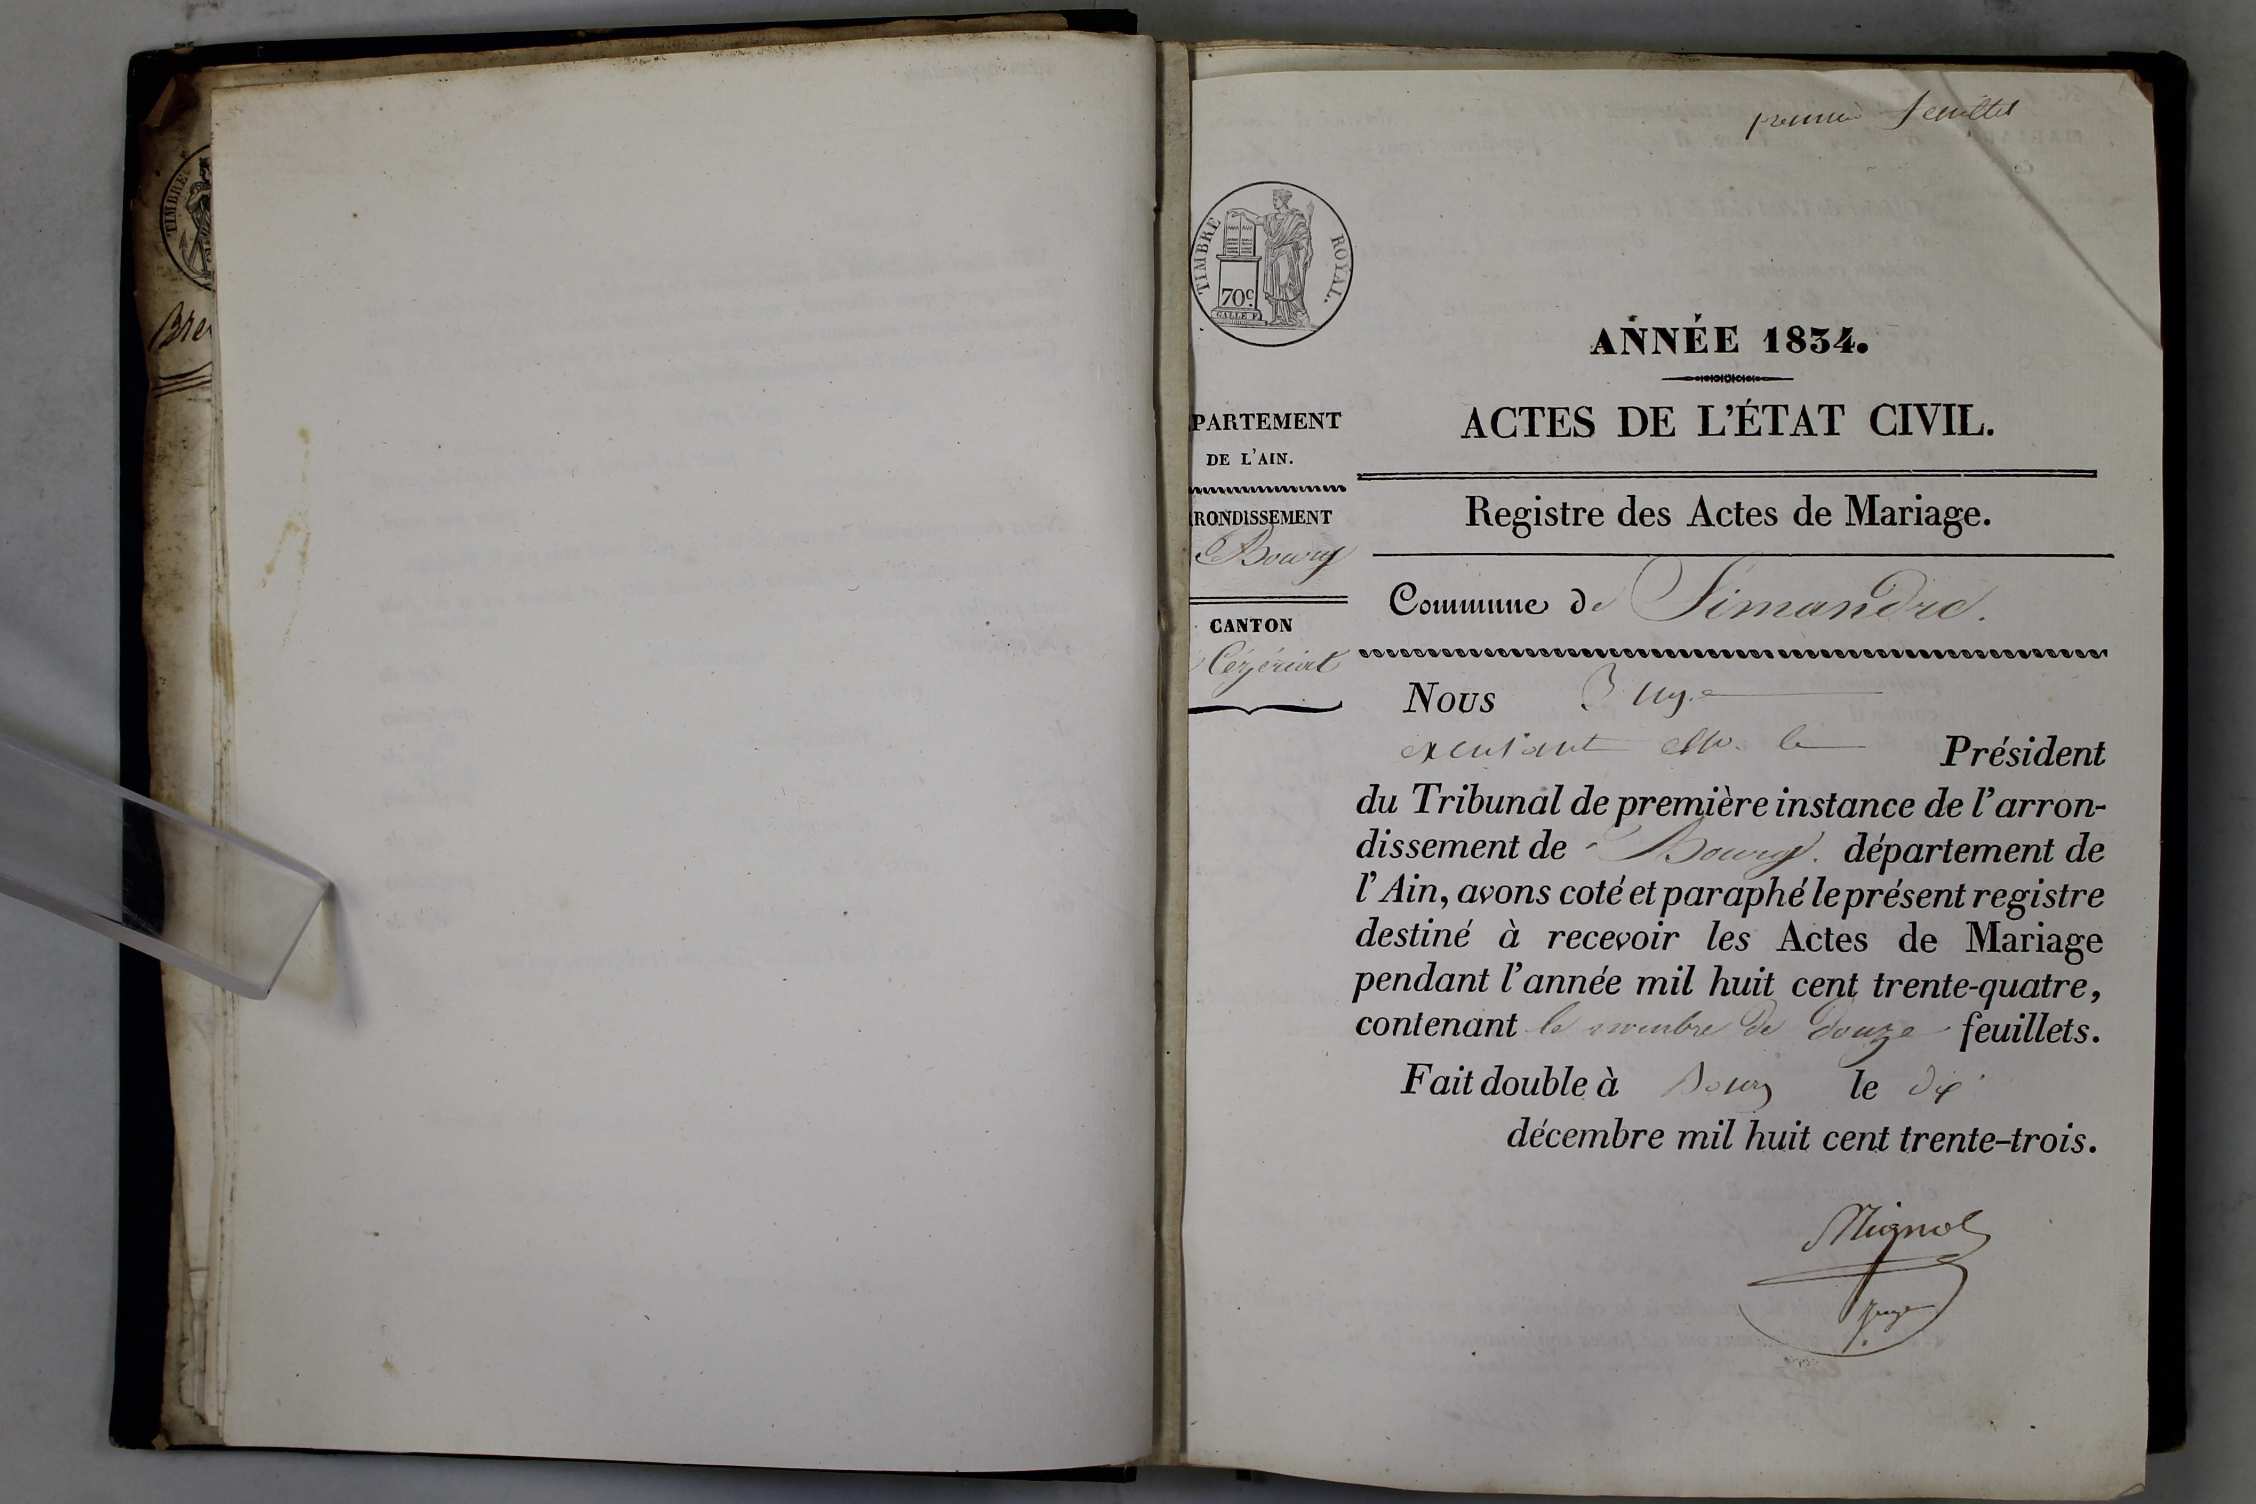 TIMBRE
Bre
premier feuillet
TIMBRE ROYAL.
70c.
GALLE F.
ANNÉE 1834.
PARTEMENT
DE L'AIN.
RONDISSEMENT
Bourg
CANTON
Cézériat
ACTES DE L'ÉTAT CIVIL.
Registre des Actes de Mariage.
Commune de Simandre.
Nous Juge
Président
du Tribunal de première instance de l'arron-
dissement de Bourg. département de
l'Ain, avons coté et paraphé le présent registre
destiné à recevoir les Actes de Mariage
pendant l'année mil huit cent trente-quatre,
contenant le nombre de douze feuillets.
Fait double à Bourg le dix
décembre mil huit cent trente-trois.
Mignot
Juge